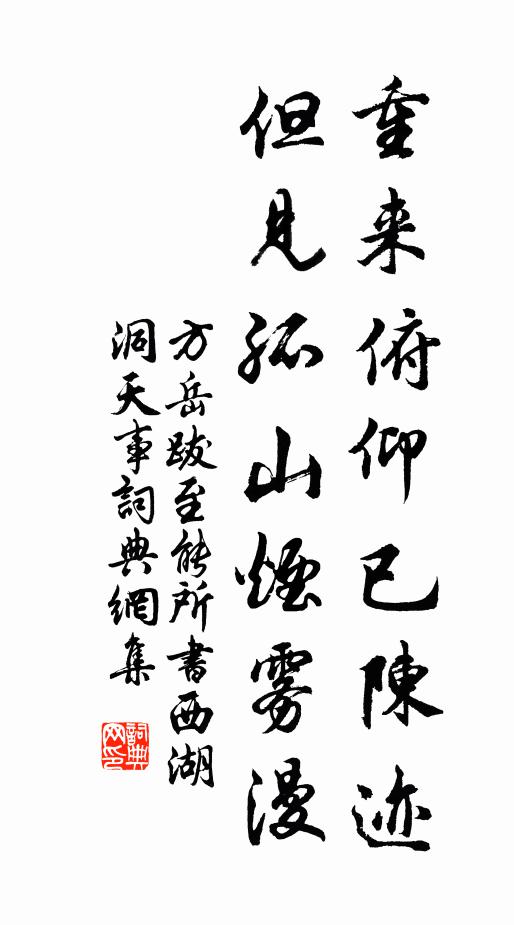 重来俯仰已陳迹
但見孤山煙雾漫
方岳跋至能所書西湖
洞天事詞典網集
詞典
网印